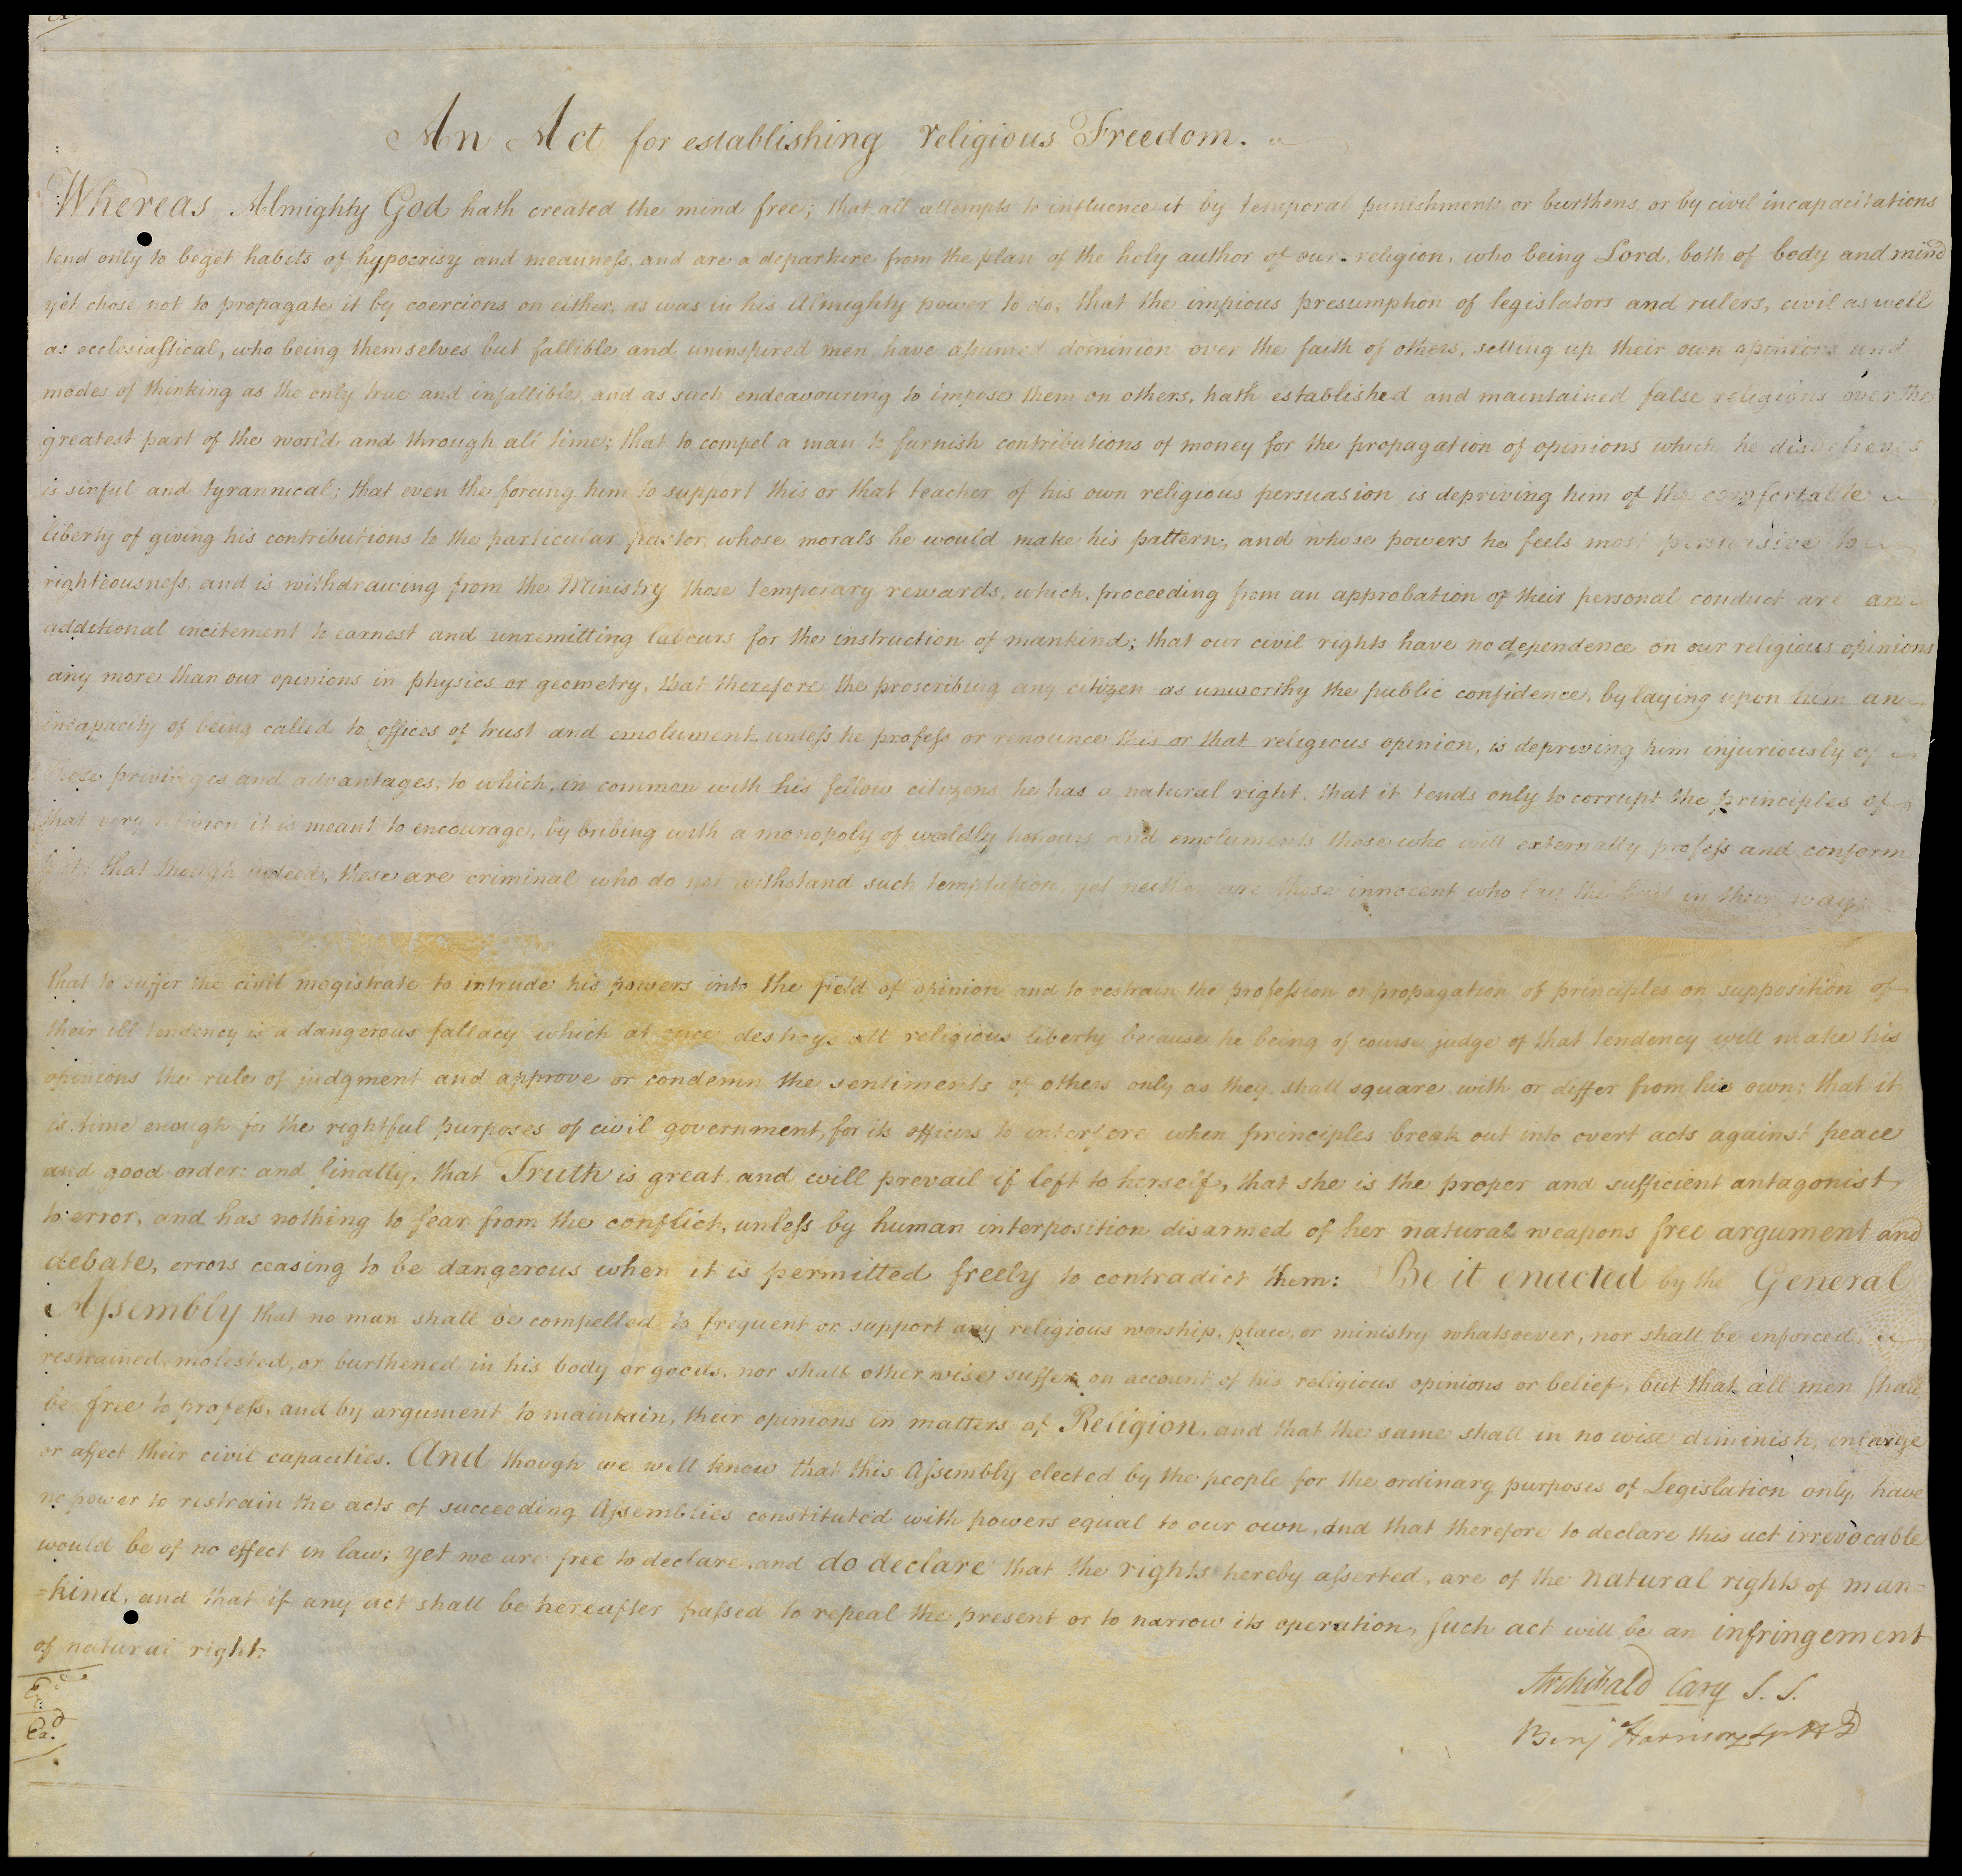 An Act for establishing religious Freedom.
Whereas Almighty God hath created the mind free; that all attempts to influence it by temporal punishments or burthens, or by civil incapacitations
tend only to beget habits of hypocrisy and meanness, and are a departure from the plan of the holy author of our religion, who being Lord, both of body and mind
yet chose not to propagate it by coercions on either, as was in his Almighty power to do, that the impious presumption of legislators and rulers, civil as well
as ecclesiastical, who being themselves but fallible and uninspired men have assumed dominion over the faith of others, setting up their own opinions and
modes of thinking as the only true and infallible, and as such endeavouring to impose them on others, hath established and maintained false religions over the
greatest part of the world and through all time; that to compel a man to furnish contributions of money for the propagation of opinions which he disbelieves
is sinful and tyrannical; that even the forcing him to support this or that teacher of his own religious persuasion is depriving him of the comfortable
liberty of giving his contributions to the particular pastor, whose morals he would make his pattern, and whose powers he feels most persuasive to
righteousness, and is withdrawing from the Ministry those temporary rewards, which, proceeding from an approbation of their personal conduct are an
additional incitement to earnest and unremitting labours for the instruction of mankind; that our civil rights have no dependence on our religious opinions
any more than our opinions in physics or geometry, that therefore the proscribing any citizen as unworthy the public confidence, by laying upon him an
incapacity of being called to offices of trust and emolument, unless he profess or renounce this or that religious opinion, is depriving him injuriously of
those privileges and advantages, to which, in common with his fellow citizens, he has a natural right, that it tends only to corrupt the principles of
that very religion it is meant to encourage, by bribing with a monopoly of worldly honours and emoluments those who will externally profess and conform
to it; that though indeed, these are criminal who do not withstand such temptation, yet neither are those innocent who lay the bait in their way;
that to suffer the civil magistrate to intrude his powers into the field of opinion and to restrain the profession or propagation of principles on supposition of
their ill tendency is a dangerous fallacy which at once destroys all religious liberty because he being of course judge of that tendency will make his
opinions the rule of judgment and approve or condemn the sentiments of others only as they shall square with or differ from his own; that it
is time enough for the rightful purposes of civil government, for its officers to interfere when principles break out into overt acts against peace
and good order: and finally, that Truth is great and will prevail if left to herself, that she is the proper and sufficient antagonist
to error, and has nothing to fear from the conflict, unless by human interposition disarmed of her natural weapons free argument and
debate, errors ceasing to be dangerous when it is permitted freely to contradict them: Be it enacted by the General
Assembly that no man shall be compelled to frequent or support any religious worship, place, or ministry whatsoever, nor shall be enforced,
restrained, molested, or burthened in his body or goods, nor shall otherwise suffer on account of his religious opinions or belief, but that all men shall
be free to profess, and by argument to maintain, their opinions in matters of Religion, and that the same shall in no wise diminish, enlarge
or affect their civil capacities. And though we well know that this Assembly elected by the people for the ordinary purposes of Legislation only, have
no power to restrain the acts of succeeding Assemblies constituted with powers equal to our own, and that therefore to declare this act irrevocable
would be of no effect in law; yet we are free to declare, and do declare that the rights hereby asserted, are of the natural rights of man=
=kind, and that if any act shall be hereafter passed to repeal the present or to narrow its operation, such act will be an infringement
of natural right:
Archibald Cary S. S.
Exd.
Benj Harrison Sp HD